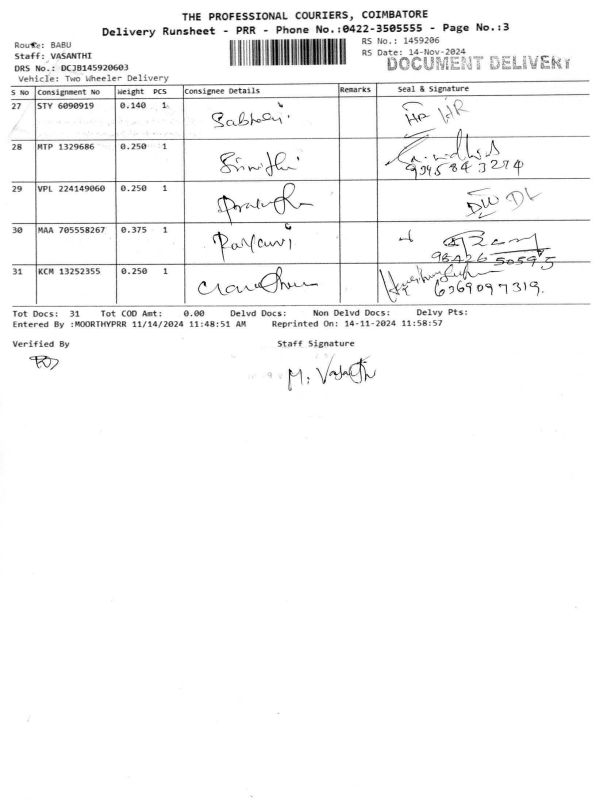 THE PROFESSIONAL COURIERS, COIMBATORE
Delivery Runsheet - PRR - Phone No.:0422-3505555 - Page No.:3
Route: BABU
RS No.: 1459206
Staff: VASANTHI
RS Date: 14-Nov-2024
DRS No.: DCJB145920603
DOCUMENT DELIVERY
Vehicle: Two Wheeler Delivery
S No Consignment No Weight PCS Consignee Details Remarks Seal & Signature
27 STY 6090919 0.140 1 HR HR
28 MTP 1329686 0.250 1 Srinidhi
9945843274
29 VPL 224149060 0.250 1
30 MAA 705558267 0.375 1
98426 50595
31 KCM 13252355 0.250 1
6369097319.
Tot Docs: 31 Tot COD Amt: 0.00 Delvd Docs: Non Delvd Docs: Delvy Pts:
Entered By :MOORTHYPRR 11/14/2024 11:48:51 AM Reprinted On: 14-11-2024 11:58:57
Verified By Staff Signature
M. Vasanthi